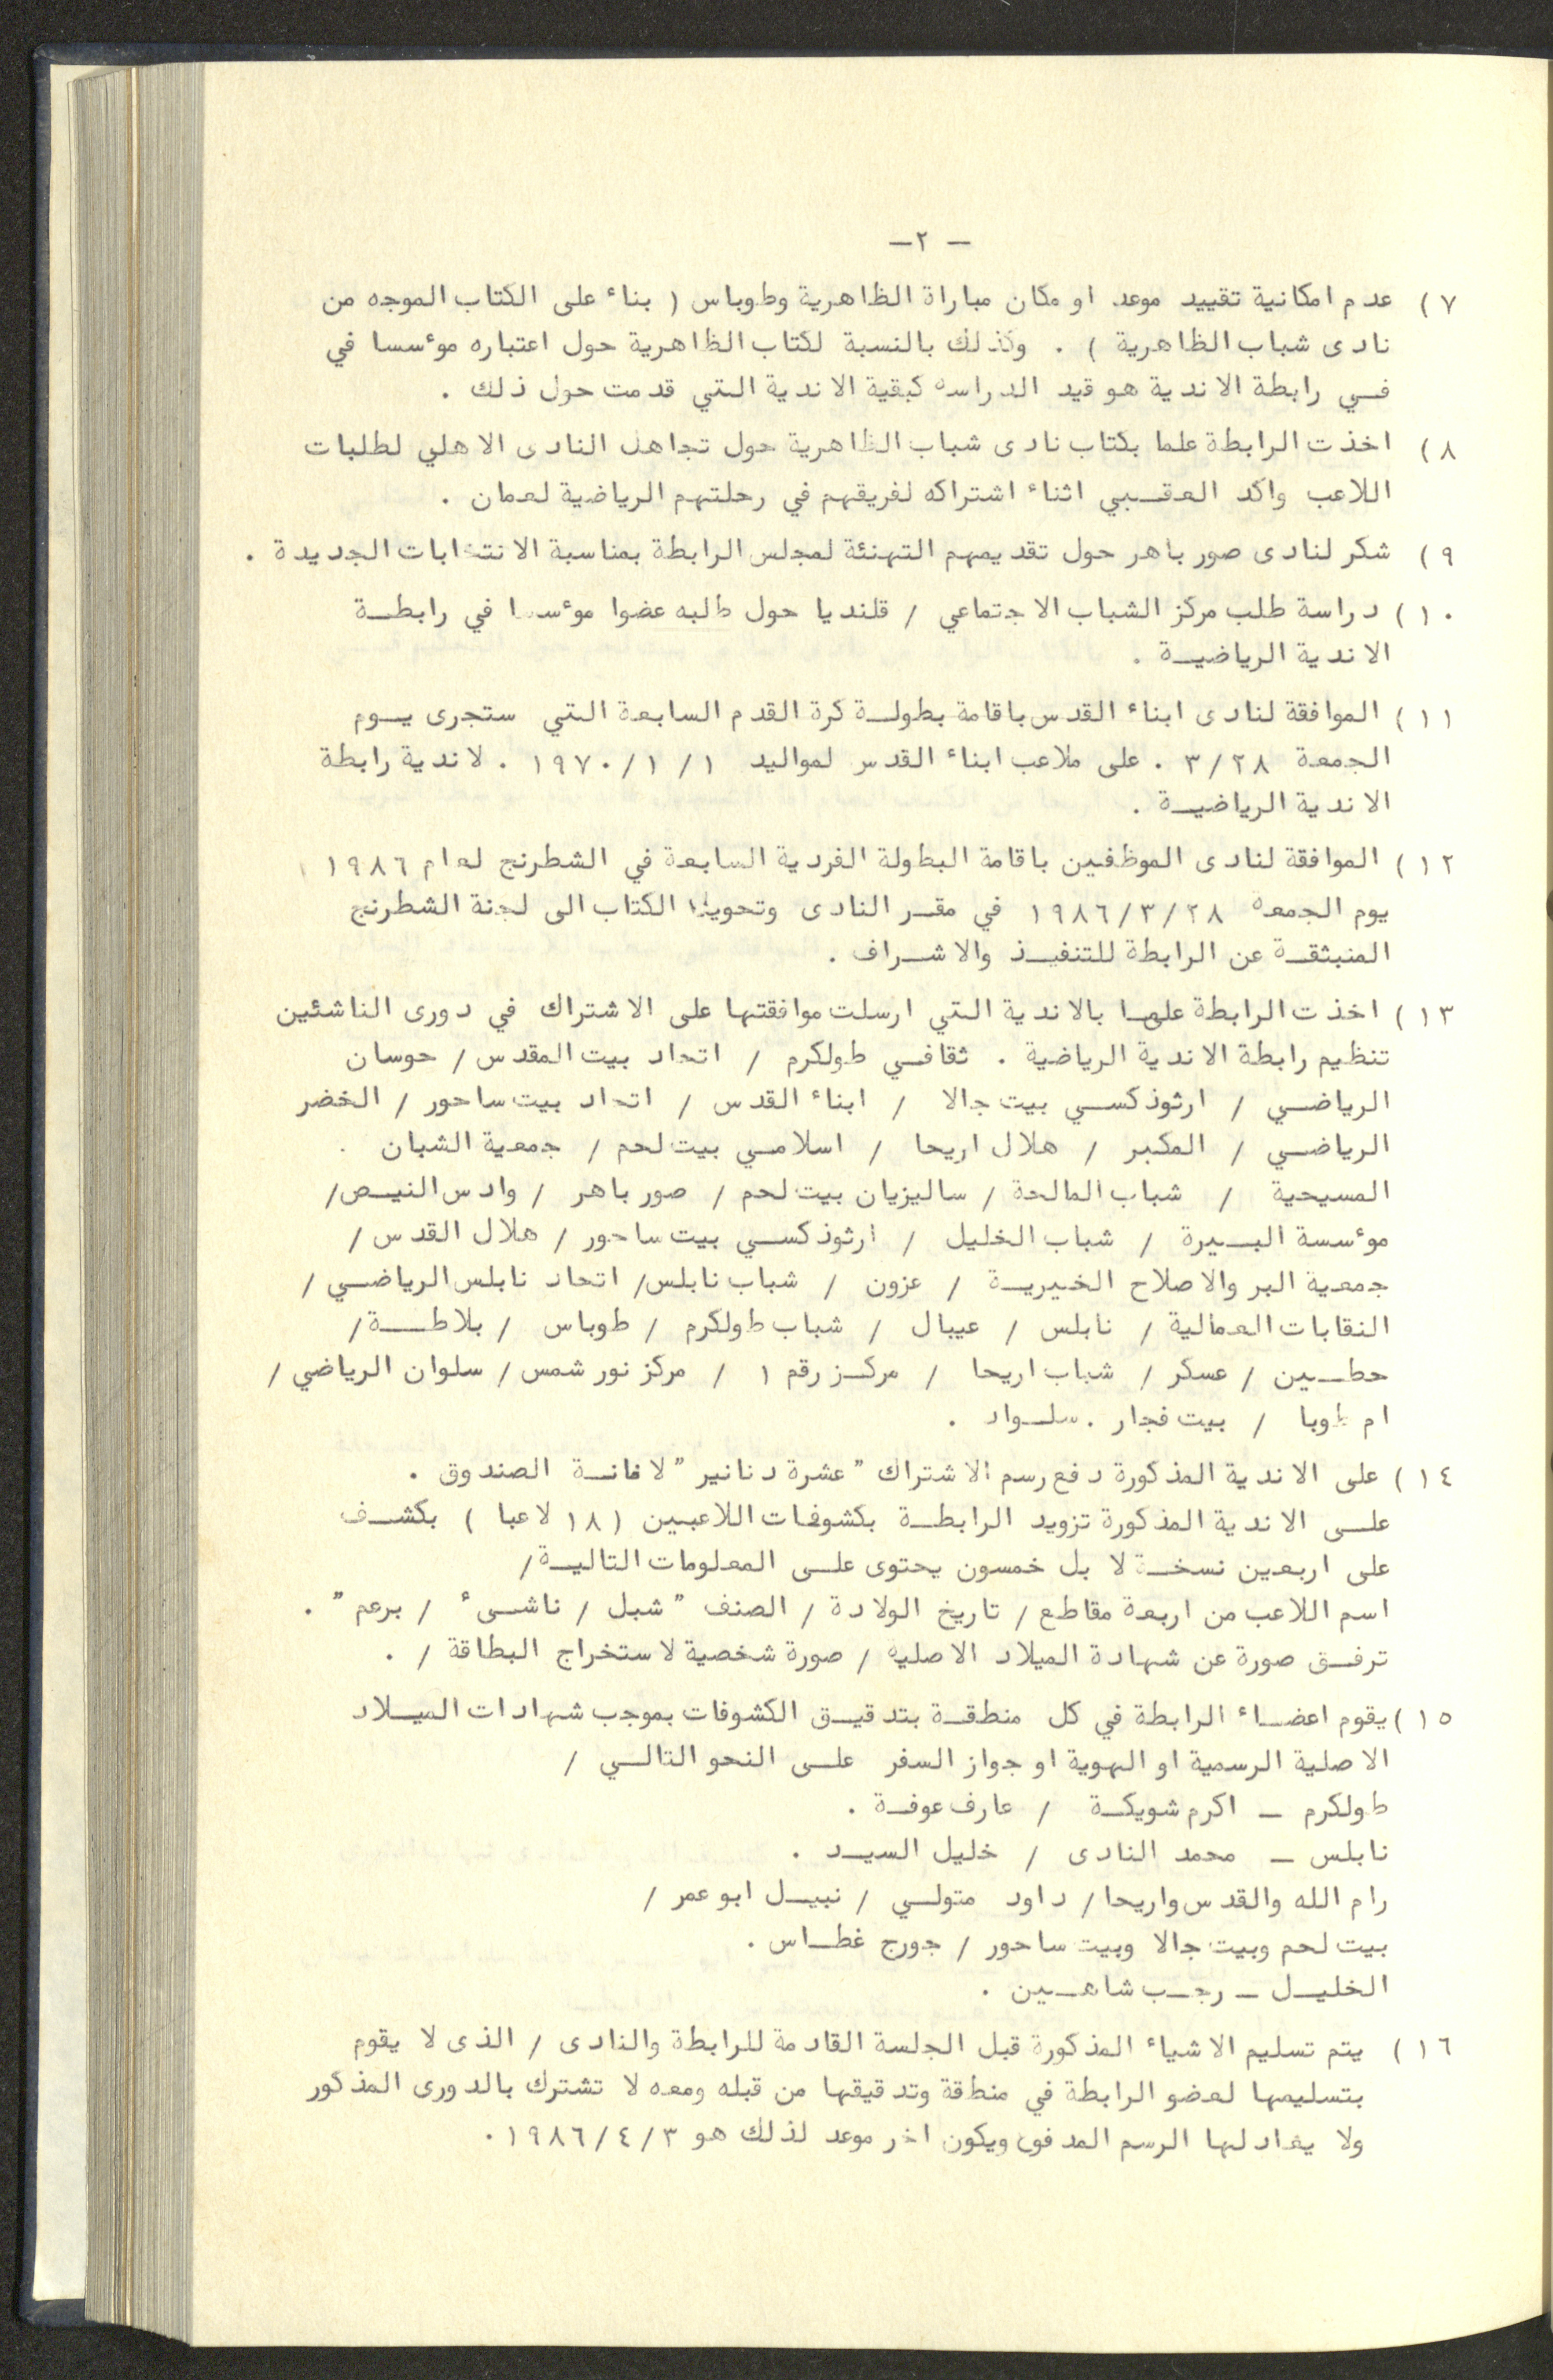 — ٢—
٧) عدم امكانية تقييد موعد او مكان مباراة الظاهرية وطوباس ( بناء على الكتاب الموجه من
نادى شباب الظاهرية ) . وكذلك بالنسبة لكتاب الظاهرية حول اعتباره موءسسا في
فـي رابطة الاندية هو قيد الدراسه كبقية الاندية التي قدمت حول ذلك .
٨) اخذت الرابطة علما بكتاب نادى شباب الظاهرية حول تجاهل النادى الاهلي لطلبات
اللاعب واكد العقـبي اثناء اشتراكه لفريقهم في رحلتهم الرياضية لعمان .
٩) شكر لنادى صور باهر حول تقديمهم التهنئة لمجلس الرابطة بمناسبة الانتخابات الجديدة .
١٠) دراسة طلب مركز الشباب الاجتماعي / قلنديا حول طلبه عضوا موءسسا في رابطـة
الاندية الرياضيـة .
١١) الموافقة لنادى ابناء القدس باقامة بطولـة كرة القدم السابعة التي ستجرى يـوم
الجمعة ٣/٢٨ . على ملاعب ابناء القدس لمواليد ١٩٧٠/١/١ . لاندية رابطة
الاندية الرياضيـة .
١٢) الموافقة لنادى الموظفين باقامة البطولة الفردية السابعة في الشطرنج لعام ١٩٨٦
يوم الجمعه ١٩٨٦/٣/٢٨ في مقـر النادى وتحويل الكتاب الى لجنة الشطرنج
المنبثقـة عن الرابطة للتنفيـذ والاشـراف .
١٣) اخذت الرابطة علما بالاندية التي ارسلت موافقتها على الاشتراك في دورى الناشئين
تنظيم رابطة الاندية الرياضية . ثقافـي طولكرم / اتحاد بيت المقدس / حوسان
الرياضـي / ارثوذكسـي بيت جالا / ابناء القدس / اتحاد بيت ساحور / الخضر
الرياضـي / المكبر / هلال اريحا / اسلامـي بيت لحم / جمعية الشبان .
المسيحية / شباب المالحة / ساليزيان بيت لحم / صور باهر / وادس النيـص/
موءسسة البـيرة / شباب الخليل / ارثوذكسـي بيت ساحور / هلال القدس /
جمعية البر والاصلاح الخيريـة / عزون / شباب نابلس/ اتحاد نابلس الرياضـي /
النقابات العمالية / نابلس / عيبال / شباب طولكرم / طوباس / بلاطـة/
حطـين / عسكر / شباب اريحا / مركـز رقم ١ / مركز نور شمس / سلوان الرياضي /
ام طوبا / بيت فجار . سلـواد .
١٤) على الاندية المذكورة دفع رسم الاشتراك " عشرة دنانير " لامانـة الصندوق .
علـى الاندية المذكورة تزويد الرابطـة بكشوفات اللاعبين ( ١٨ لاعبا ) بكشـف
على اربعين نسخـة لا بل خمسون يحتوى علـى المعلومات التاليـة/
اسم اللاعب من اربعة مقاطع / تاريخ الولادة / الصنف " شبل / ناشـىء / برعم " .
ترفـق صورة عن شهادة الميلاد الاصليه / صورة شخصية لاستخراج البطاقة / .
١٥) يقوم اعضـاء الرابطة في كل منطقـة بتدقيـق الكشوفات بموجب شهادات الميـلاد
الاصلية الرسمية او الهوية او جواز السفر علـى النحو التالـي /
طولكرم — اكرم شويكـة / عارف عوفـة .
نابلس — محمد النادى / خليل السيـد .
رام الله والقدس واريحا / داود متولـي / نبيـل ابو عمر /
بيت لحم وبيت جالا وبيت ساحور / جورج غطـاس .
الخليـل — رجـب شاهـين .
١٦) يتم تسليم الاشياء المذكورة قبل الجلسة القادمة للرابطة والنادى / الذى لا يقوم
بتسليمها لعضو الرابطة في منطقة وتدقيقها من قبله ومعه لا تشترك بالدورى المذكور
ولا يعاد لها الرسم المدفوع ويكون اخر موعد لذلك هو ١٩٨٦/٤/٣ .